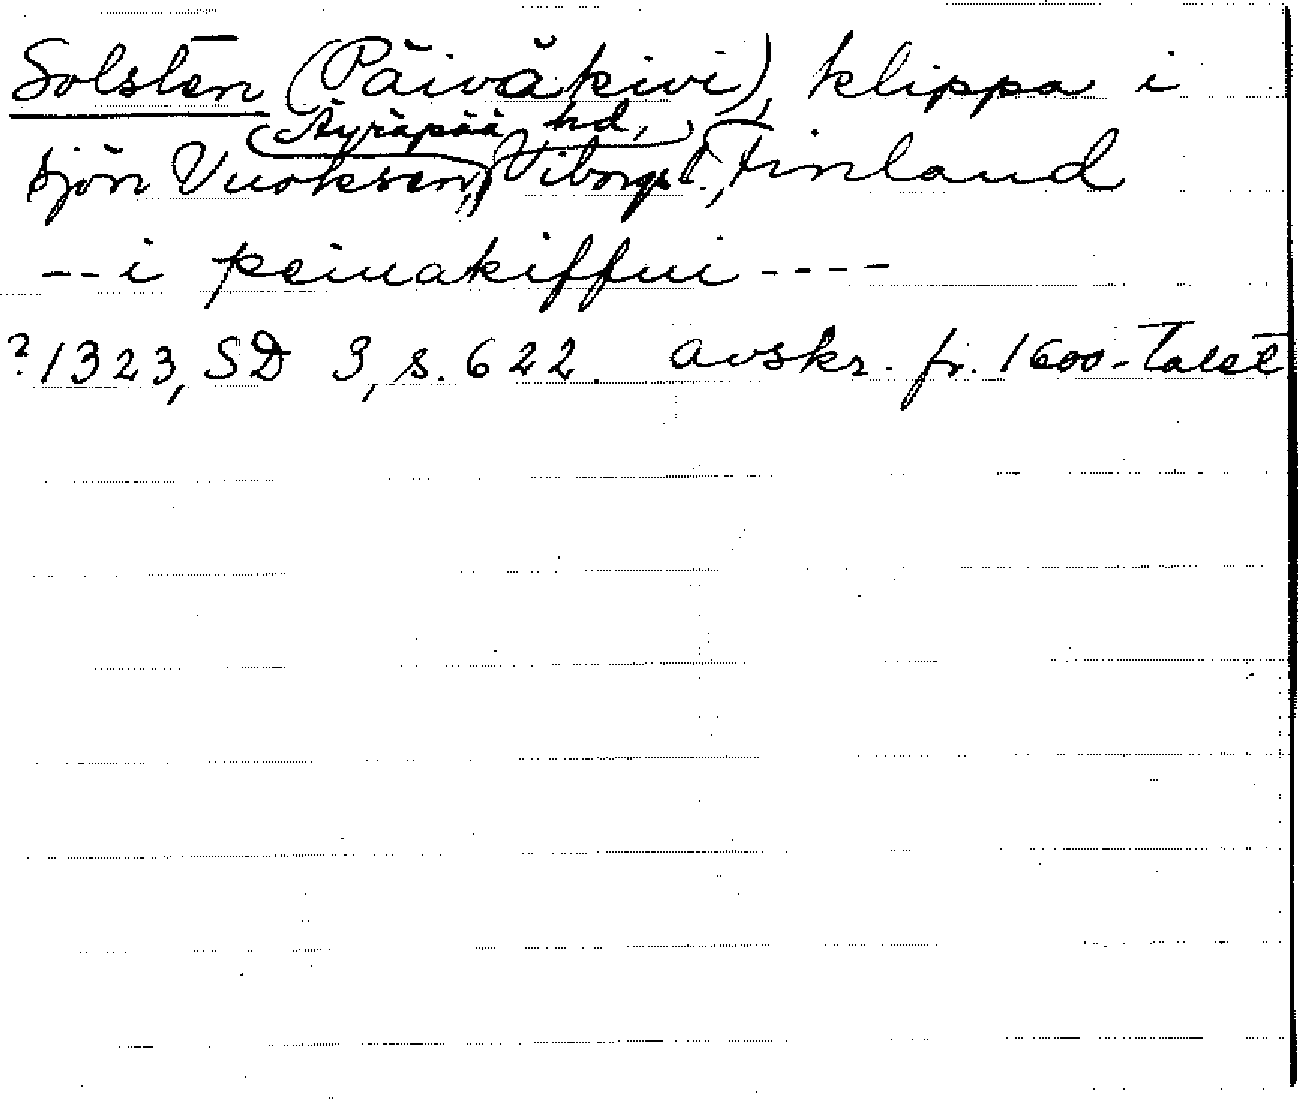 Solsten (Päiväkivi), klippa i
Äyräpää hd,
sjön Vuoksen, Viborgs l., Finland
--i peiuakiffui----
? 1323, SD 3, s. 622. avskr. fr. 1600-talet